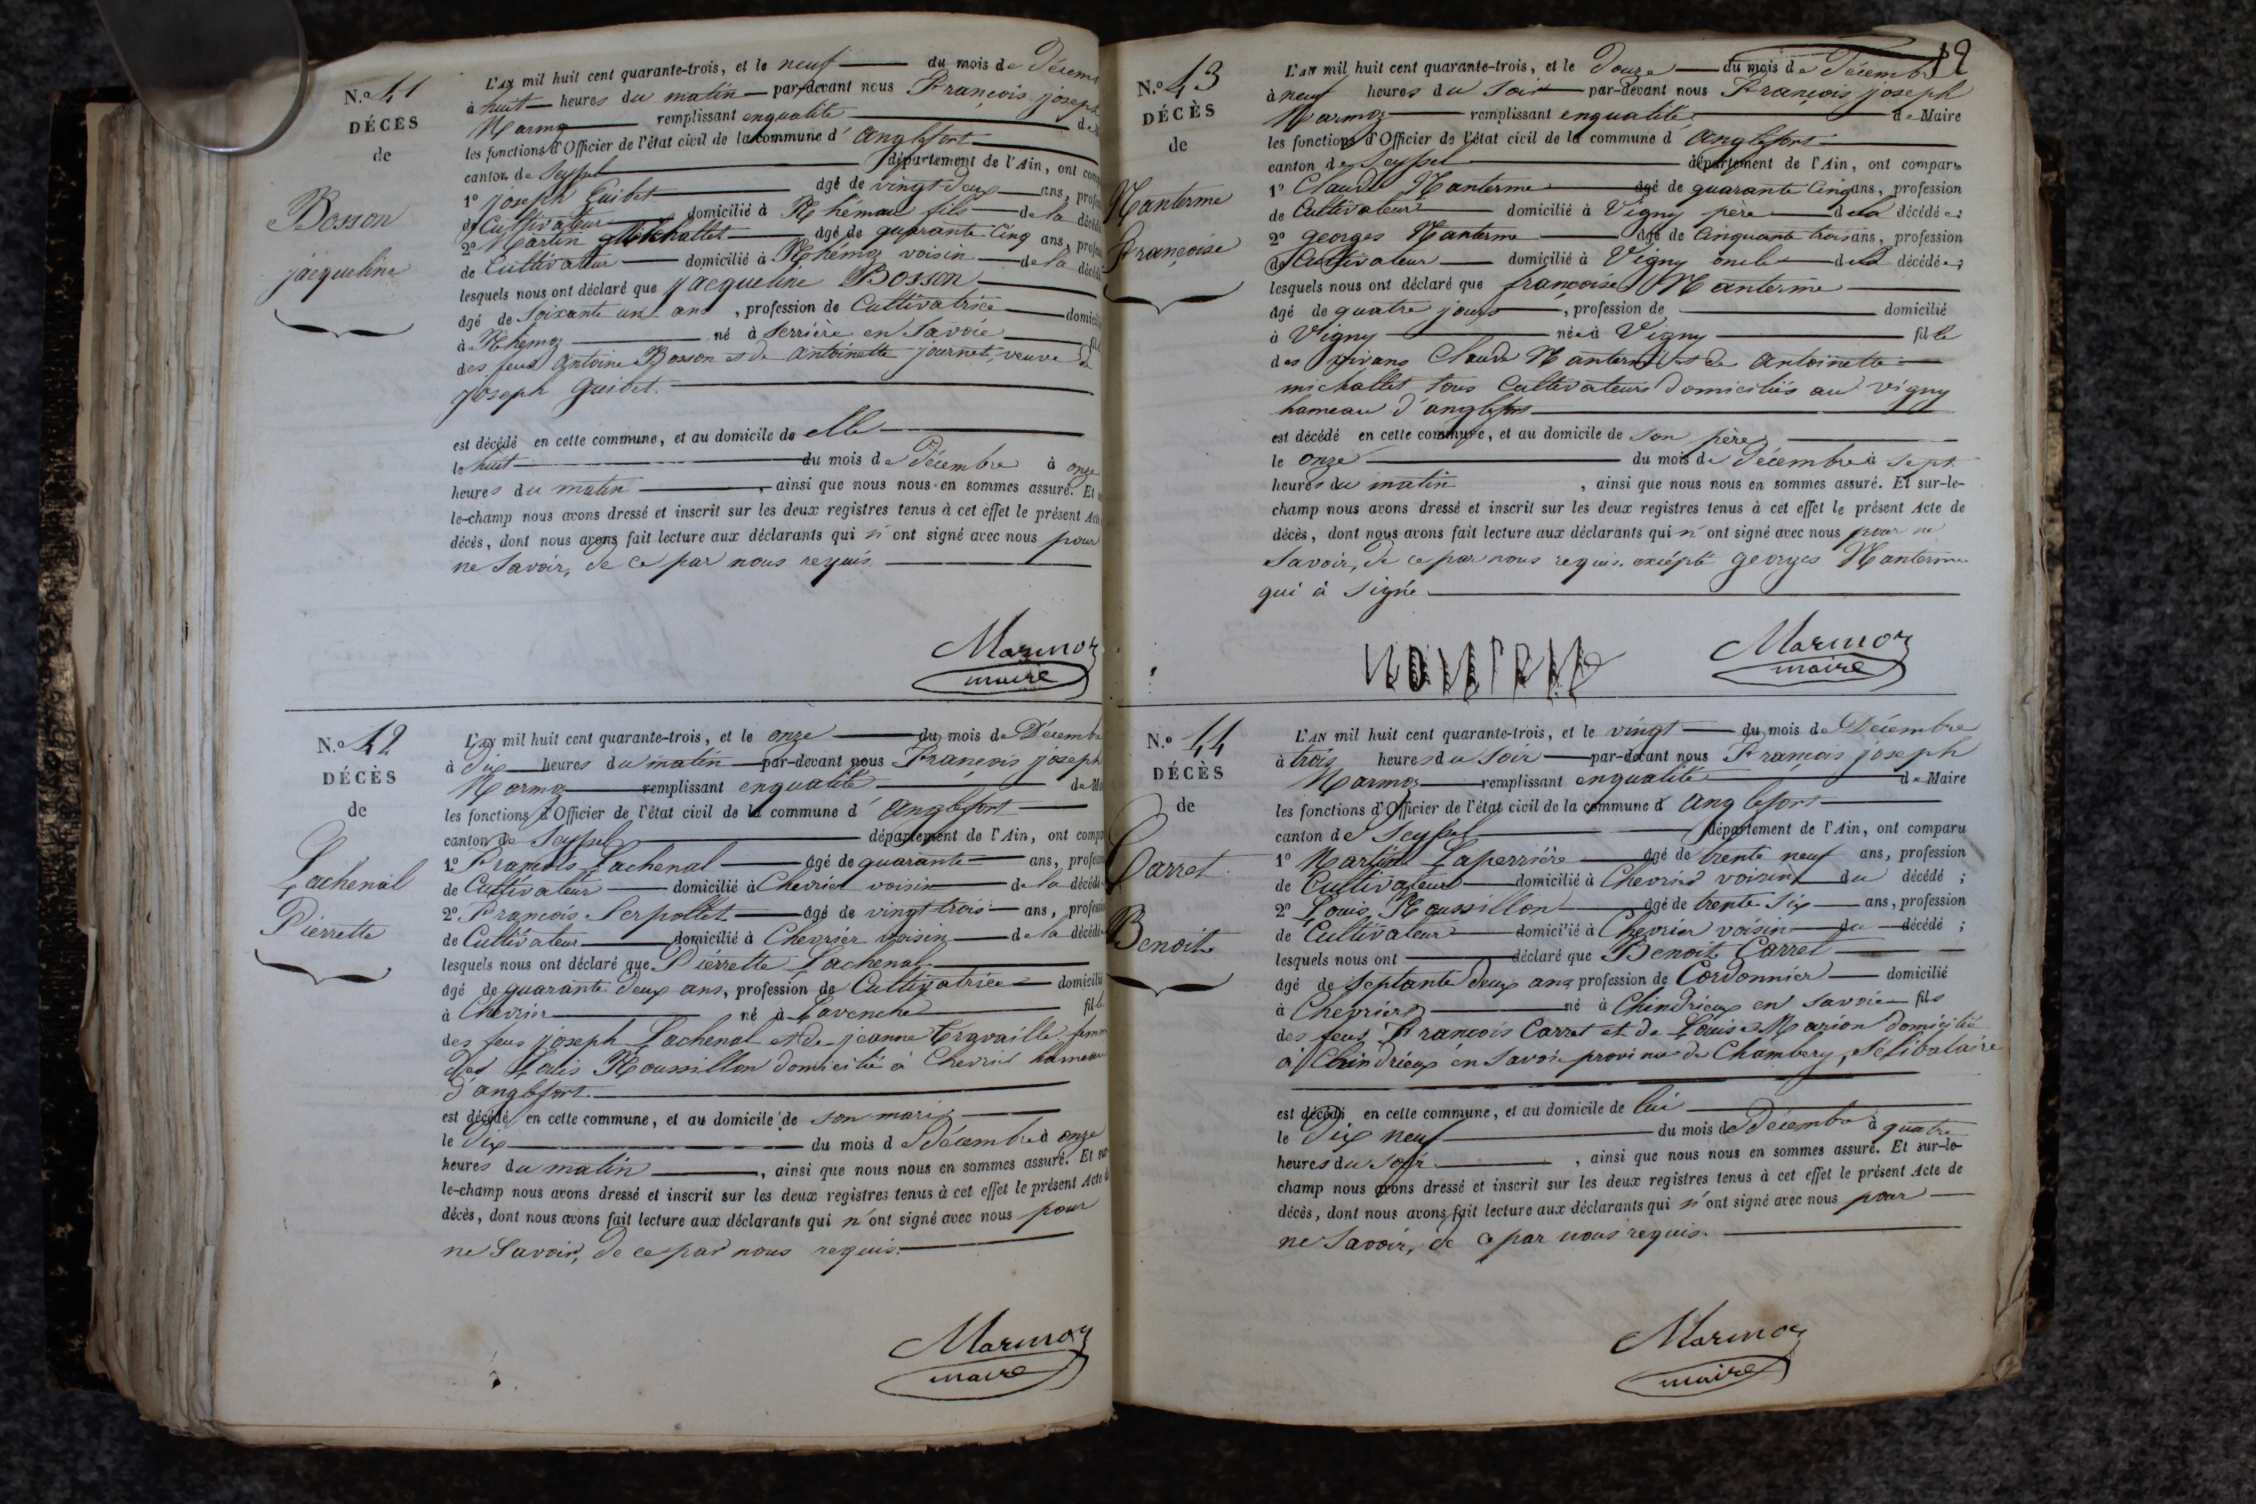 N.o 41
DÉCÈS
de
Bosson
jacqueline
L'AN mil huit cent quarante-trois, et le neuf du mois de Décem
à huit heures du matin par-devant nous François joseph
Marmoz remplissant en qualité de
les fonctions d'Officier de l'état civil de la commune d'anglefort
canton de Seyssel département de l'Ain, ont comp
1o joseph Guibet âgé de vingt deux ans, profes
de Cultivateur domicilié à Rhémoz fils de la décédé
2o Martin Michallet âgé de quarante Cinq ans, profes
de Cultivateur domicilié à Rhémoz voisin de la décédé
lesquels nous ont déclaré que jacqueline Bosson
âgé de Soixante un ans, profession de Cultivatrice domicili
à Rhémoz né à Serrière en Savoie fil
des feus Antoine Bosson et de antoinette journet, veuve de
joseph Guibet.
est décédé en cette commune, et au domicile de elle
le huit du mois de Décembre à onze
heures du matin, ainsi que nous nous en sommes assuré. Et
le-champ nous avons dressé et inscrit sur les deux registres tenus à cet effet le présent Acte
décès, dont nous avons fait lecture aux déclarants qui n'ont signé avec nous pour
ne Savoir, de ce par nous requis
Marmoz
maire
N.o 42
DÉCÈS
de
Lachenal
Pierrette
L'AN mil huit cent quarante-trois, et le onze du mois de Décemb
à Dix heures du matin par-devant nous François joseph
Marmoz remplissant en qualité de M
les fonctions d'Officier de l'état civil de la commune d'anglefort
canton de Seyssel département de l'Ain, ont compa
1o François Lachenal âgé de quarante ans, profess
de Cultivateur domicilié à Chevrier voisin de la décédé
2o François Serpollet âgé de vingt trois ans, profess
de Cultivateur domicilié à Chevrier voisin de la décédé
lesquels nous ont déclaré que Pierrette Lachenal
âgé de quarante deux ans, profession de Cultivatrice domicilié
à Chevrier né à Lavenche fille
des feus joseph Lachenal et de jeanne travaille femme
de Louis Roussillon domicilié à Chevrier hameau
d'anglefort
est décédé en cette commune, et au domicile de son mari
le Dix du mois de Décembre à onze
heures du matin, ainsi que nous nous en sommes assuré. Et sur
le-champ nous avons dressé et inscrit sur les deux registres tenus à cet effet le présent Acte d
décès, dont nous avons fait lecture aux déclarants qui n'ont signé avec nous pour
ne Savoir, de ce par nous requis.
Marmoz
maire
12
N.o 43
DÉCÈS
de
Nanterme
Françoise
L'AN mil huit cent quarante-trois, et le Douze du mois de Décemb
à neuf heures du Soir par-devant nous François joseph
Marmoz remplissant en qualité de Maire
les fonctions d'Officier de l'état civil de la commune d'anglefort
canton de Seyssel département de l'Ain, ont comparu
1o Claude Nanterme âgé de quarante Cinq ans, profession
de Cultivateur domicilié à Vigny père de la décédée;
2o georges Nanterme âgé de Cinquante trois ans, profession
de Cultivateur domicilié à Vigny oncle de la décédée;
lesquels nous ont déclaré que françoise Nanterme
âgé de quatre jours, profession de domicilié
à Vigny née à Vigny fille
des vivans Claude Nanterme et de Antoinette
michallet tous Cultivateurs domiciliés au vigny
hameau d'anglefort
est décédé en cette commune, et au domicile de son père
le onze du mois de Décembre à Sept
heures du matin, ainsi que nous nous en sommes assuré. Et sur-le-
champ nous avons dressé et inscrit sur les deux registres tenus à cet effet le présent Acte de
décès, dont nous avons fait lecture aux déclarants qui n'ont signé avec nous pour ne
Savoir, de ce par nous requis. excépté georges Nanterme
qui à signé
Marmoz
maire
N.o 44
DÉCÈS
de
Carret
Benoit
L'AN mil huit cent quarante-trois, et le vingt du mois de Décembre
à trois heures du Soir par-devant nous François joseph
Marmoz remplissant en qualité de Maire
les fonctions d'Officier de l'état civil de la commune d'anglefort
canton de Seyssel département de l'Ain, ont comparu
1o Martin Laperrière âgé de trente neuf ans, profession
de Cultivateur domicilié à Chevrier voisin du décédé;
2o Louis Roussillon âgé de trente Six ans, profession
de Cultivateur domicilié à Chevrier voisin du décédé;
lesquels nous ont déclaré que Benoit Carret
âgé de Septante deux ans profession de Cordonnier domicilié
à Chevrier né à Chindrieux en Savoie fils
des feus François Carret et de Louise Marion domicilié
à Chindrieux en Savoie province de Chambery, Sélibataire
est décédé en cette commune, et au domicile de lui
le Dix neuf du mois de Décembre à quatre
heures du Soir, ainsi que nous nous en sommes assuré. Et sur-le-
champ nous avons dressé et inscrit sur les deux registres tenus à cet effet le présent Acte de
décès, dont nous avons fait lecture aux déclarants qui n'ont signé avec nous pour
ne Savoir, de ce par nous requis.
Marmoz
maire